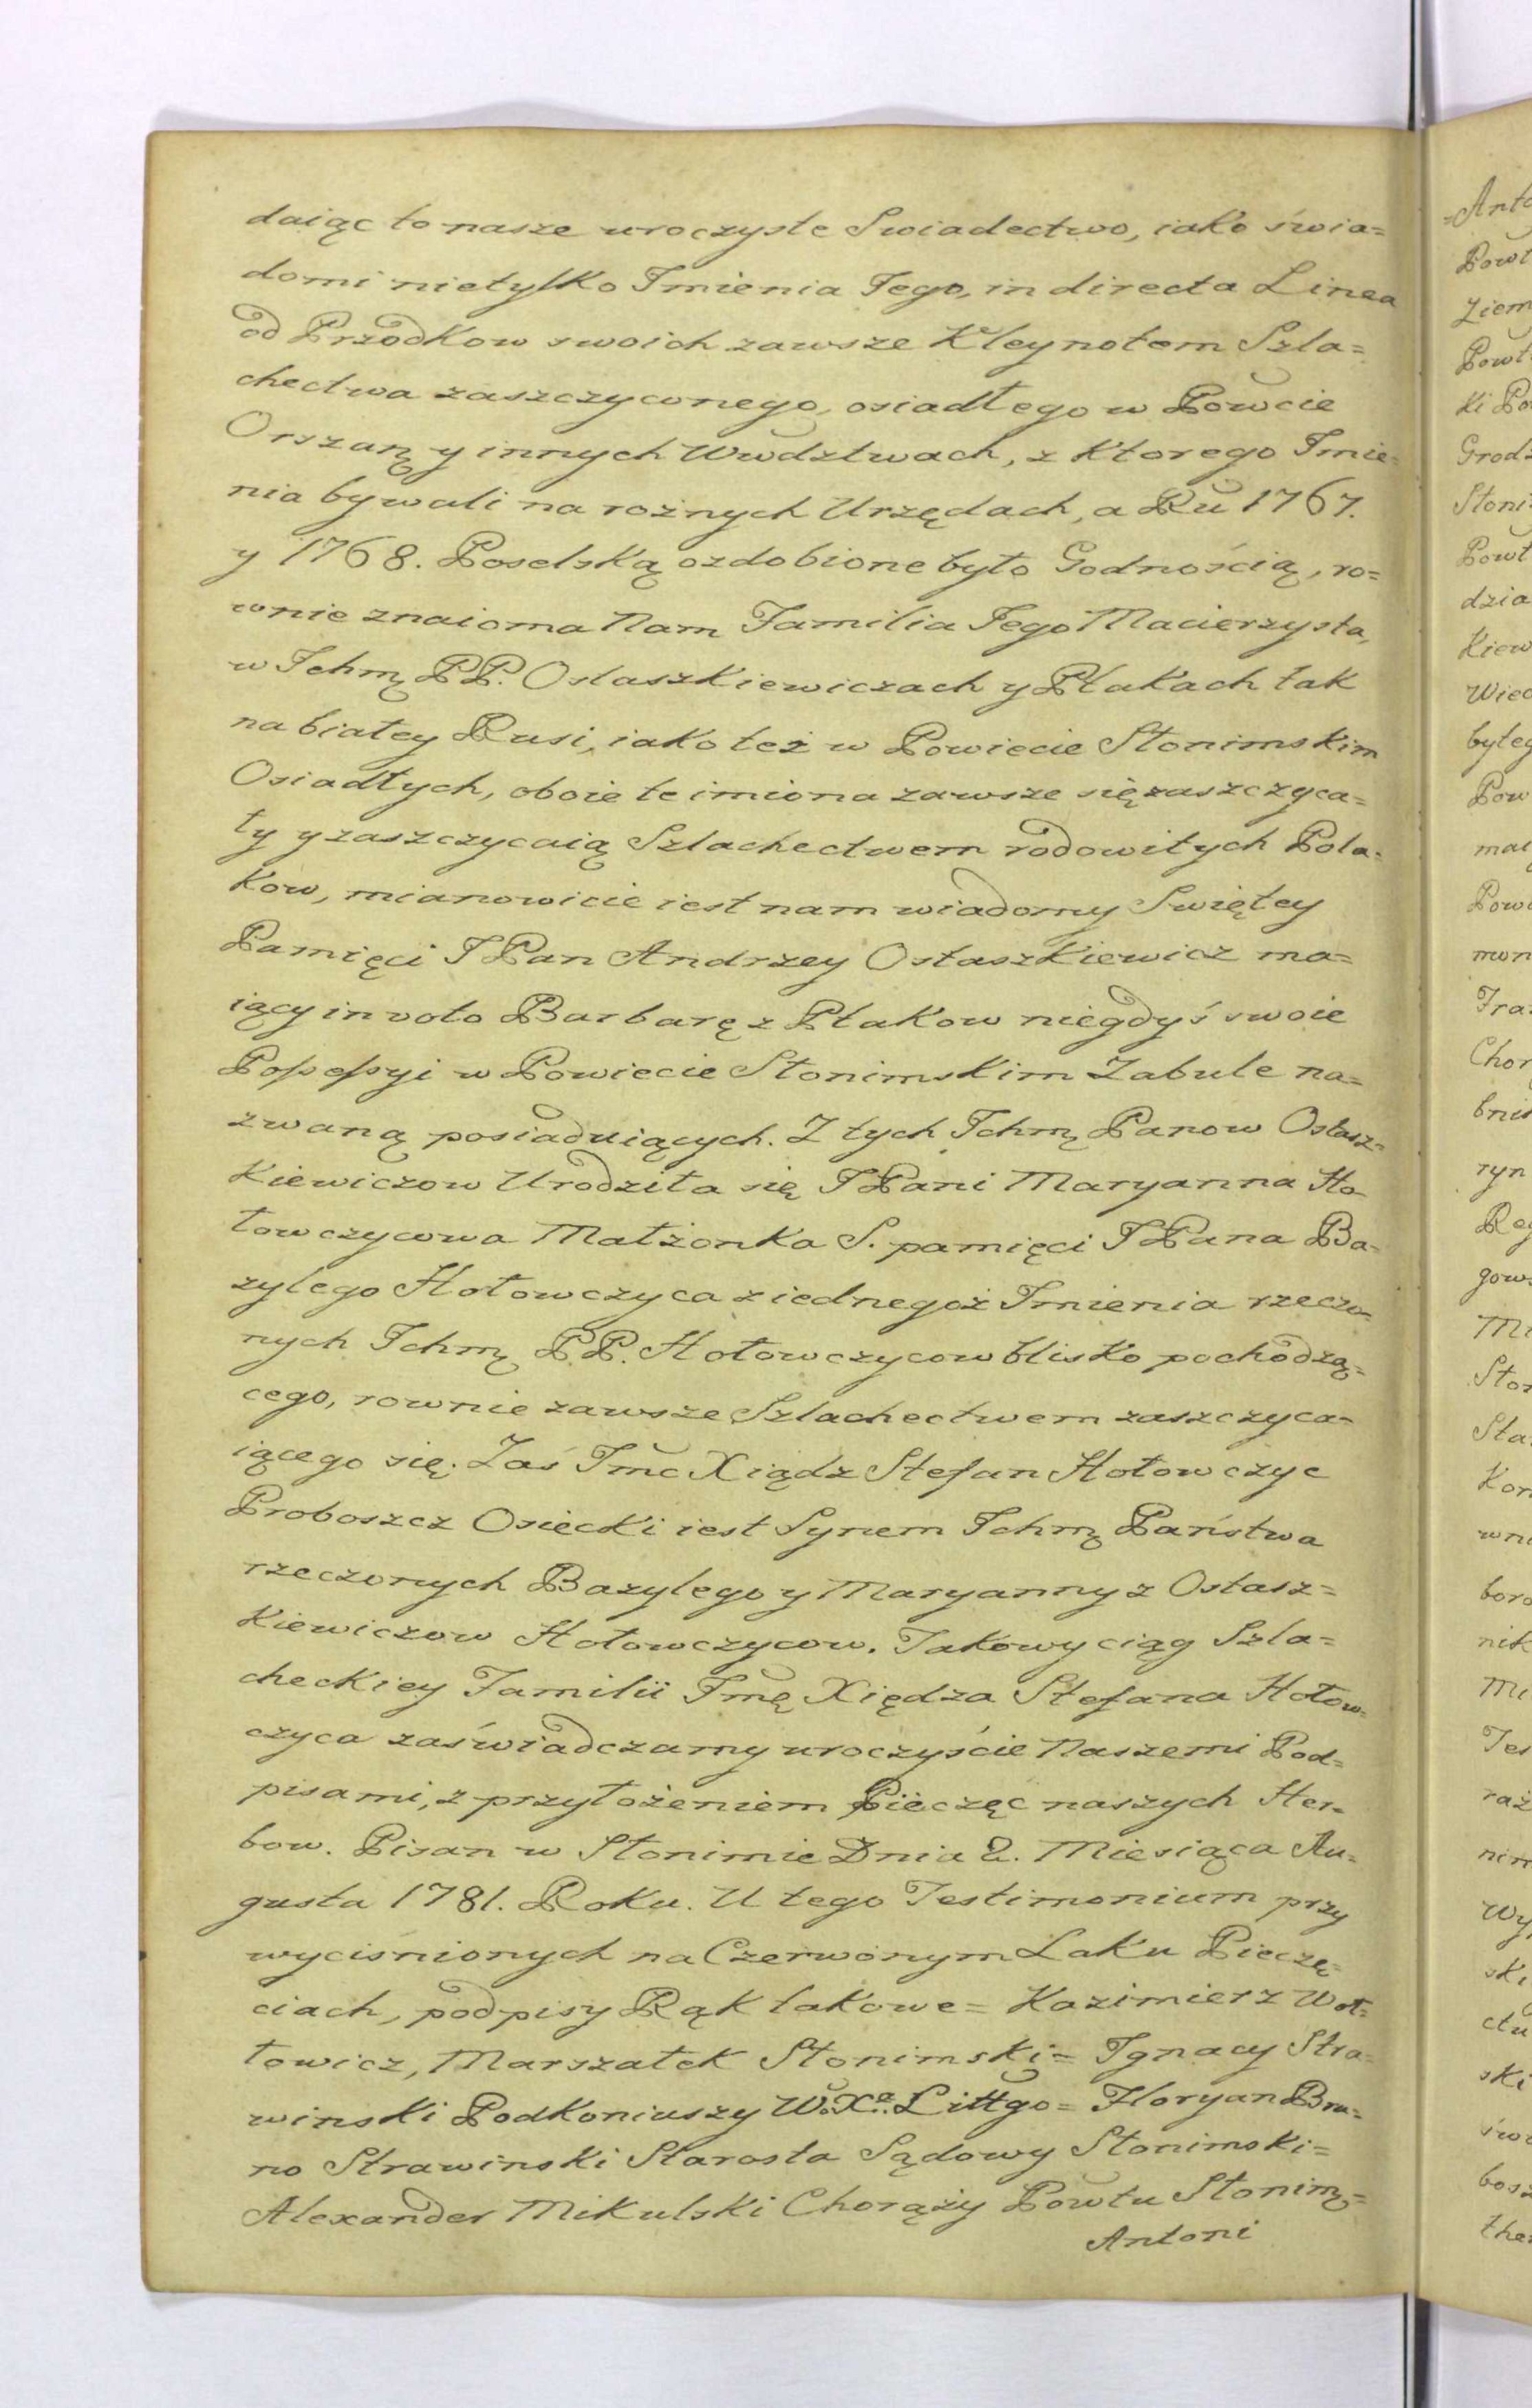 daiąc to nasze uroczyste Swiadectwo, iako świa=
domi nietylko Imienia Jego, in directa Linea
od Przodkow swoich zawsze Kleynotem Szla=
chectwa zaszczyconego, osiadłego w Powcie
Orszaņ y innych Wwdztwach, z Ktorego Imie=
nia bywali na rożnych Urzędach, a Ru 1767.
y 1768. Poselską ozdobione było Godnością, ro=
wnie znaioma Nam Familia Jego Macierzysta,
w Ichmę PP. Ostaszkiewiczach y Ptakach tak
na białey Rusi, iako też w Powiecie Słonimskim
Osiadłych, oboie te imiona zawsze się zaszczyca=
ły y zaszczycaią Szlachectwem rodowitych Pola=
kow, mianowicie iest nam wiadomy Swiętey
Pamięci JPan Andrzey Ostaszkiewicz ma=
iący in voto Barbarę z Ptakow niegdyś swoie
Possessyi w Powiecie Słonimskim Zabule na=
zwaną posiaduiących. Z tych Ichmę Panow Ostasz=
kiewiczow Urodziła się JPani Maryanna Ho=
łowczycowa Małżonka S. pamięci JPana Ba=
zylego Hołowczyca z iednegoż Imienia rzeczo=
nych Ichmę PP. Hołowczycow blisko pochodzą=
cego, rownie zawsze Szlachectwem zaszczyca=
iącego się. Zaś Jmc Xiądz Stefan Hołowczyc
Proboszcz Osiecki iest Synem Ichmę Państwa
rzeczonych Bazylego y Maryanny z Ostasz=
kiewiczow Hołowczycow. Takowy ciąg Szla=
checkiey Familii Jmę Xiędza Stefana Hołow=
czyca zaświadczamy uroczyście Naszemi Pod=
pisami, z przyłożeniem Pieczęc naszych Her=
bow. Pisan w Słonimie Dnia 2. Miesiąca Au=
gusta 1781. Roku. U tego Testimonium przy
wyciśnionych na Czerwonym Laku Pieczę=
ciach, podpisy Rąk takowe = Kazimierz Woł=
łowicz, Marszałek Słonimski = Ignacy Stra=
winski Podkoniuszy W. Xa. Littgo = Floryan Bru=
no Strawinski Starosta Sądowy Słonimski =
Alexander Mikulski Chorąży Powtu Słonimę =
Antoni